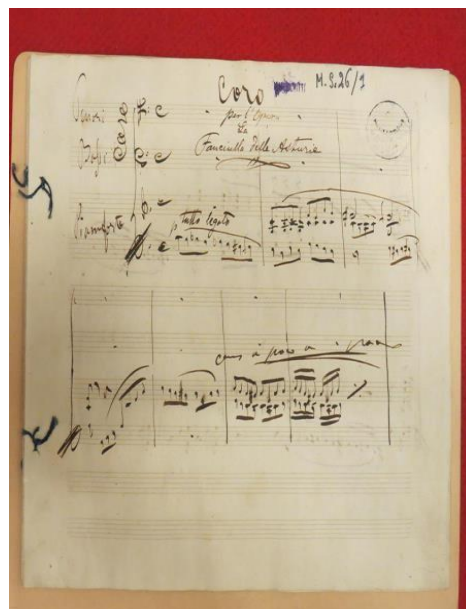 Coro M.S.26/1
per l'Opera
La
Fanciulla delle Asturie
Tenori
Bassi
Coro
Pianoforte
p tutto legato
cres a poco a poco